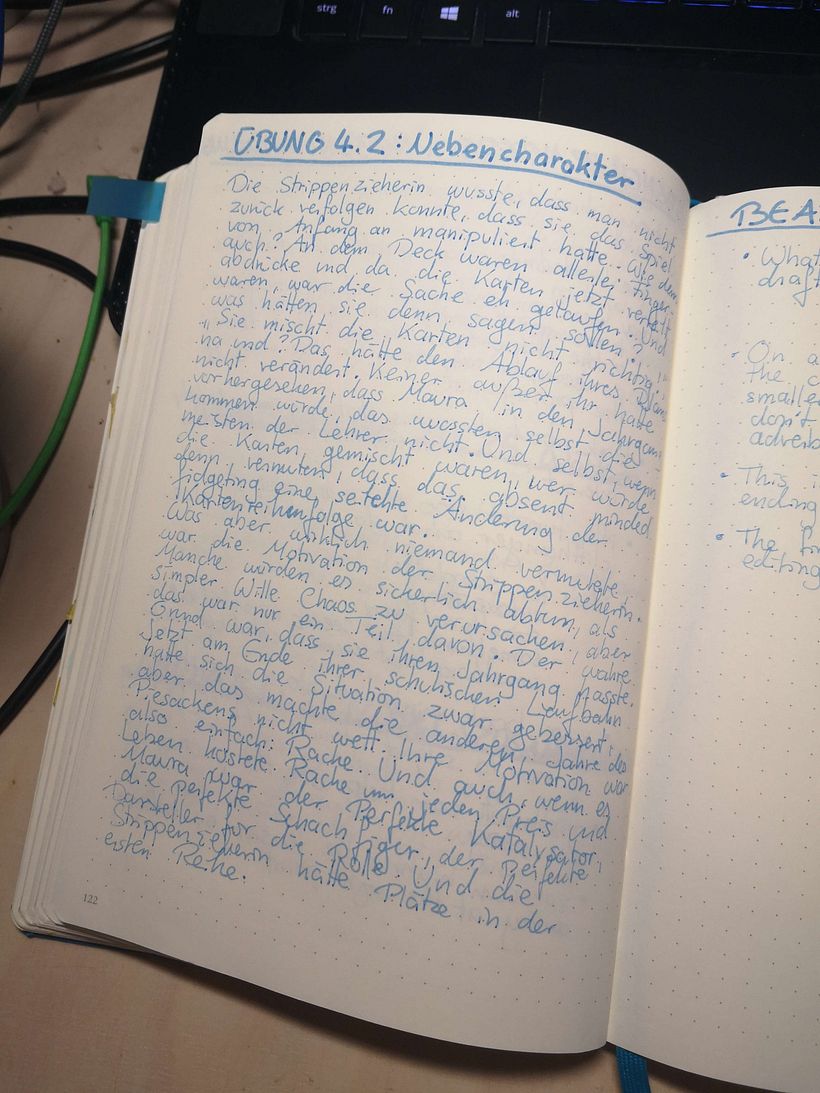 strg fn alt
ÜBUNG 4.2: Nebencharakter
Die Strippenzieherin wusste, dass man nicht
zurück verfolgen konnte, dass sie das Spiel
von Anfang an manipuliert hatte. Wie denn
auch? An dem Deck waren allerlei Finger-
abdrücke und da die Karten jetzt verteilt
waren, war die Sache eh gelaufen. Und
was hätten sie denn sagen sollen?
„Sie mischt die Karten nicht richtig."
na und? Das hätte den Ablauf ihres Plans
nicht verändert. Keiner außer ihr hatte
vorhergesehen, dass Maura in den Jahrgang
kommen würde, das wussten selbst die
meisten der Lehrer nicht. Und selbst, wenn
die Karten gemischt waren, wer würde
denn vermuten, dass das absent minded
fidgeting eine seichte Änderung der
Kartenreihenfolge war.
Was aber wirklich niemand vermutete,
war die Motivation der Strippenzieherin.
Manche würden es sicherlich abtun, als
simpler Wille Chaos zu verursachen, aber
das war nur ein Teil davon. Der wahre
Grund war, dass sie ihren Jahrgang hasste.
Jetzt am Ende ihrer schulischen Laufbahn
hatte sich die Situation zwar gebessert,
aber das machte die anderen Jahre des
Piesackens nicht wett. Ihre Motivation war
also einfach: Rache. Und auch, wenn es
Leben kostete. Rache um jeden Preis und
Maura war der Perfekte Katalysator,
die Perfekte Schachfigur, der Perfekte
Darsteller für die Rolle. Und die
Strippenzieherin hätte Plätze in der
ersten Reihe.
122
BEA
• What
draf
• On a
the c
smalle
don't
adverb
• This i
ending
• The fi
editing